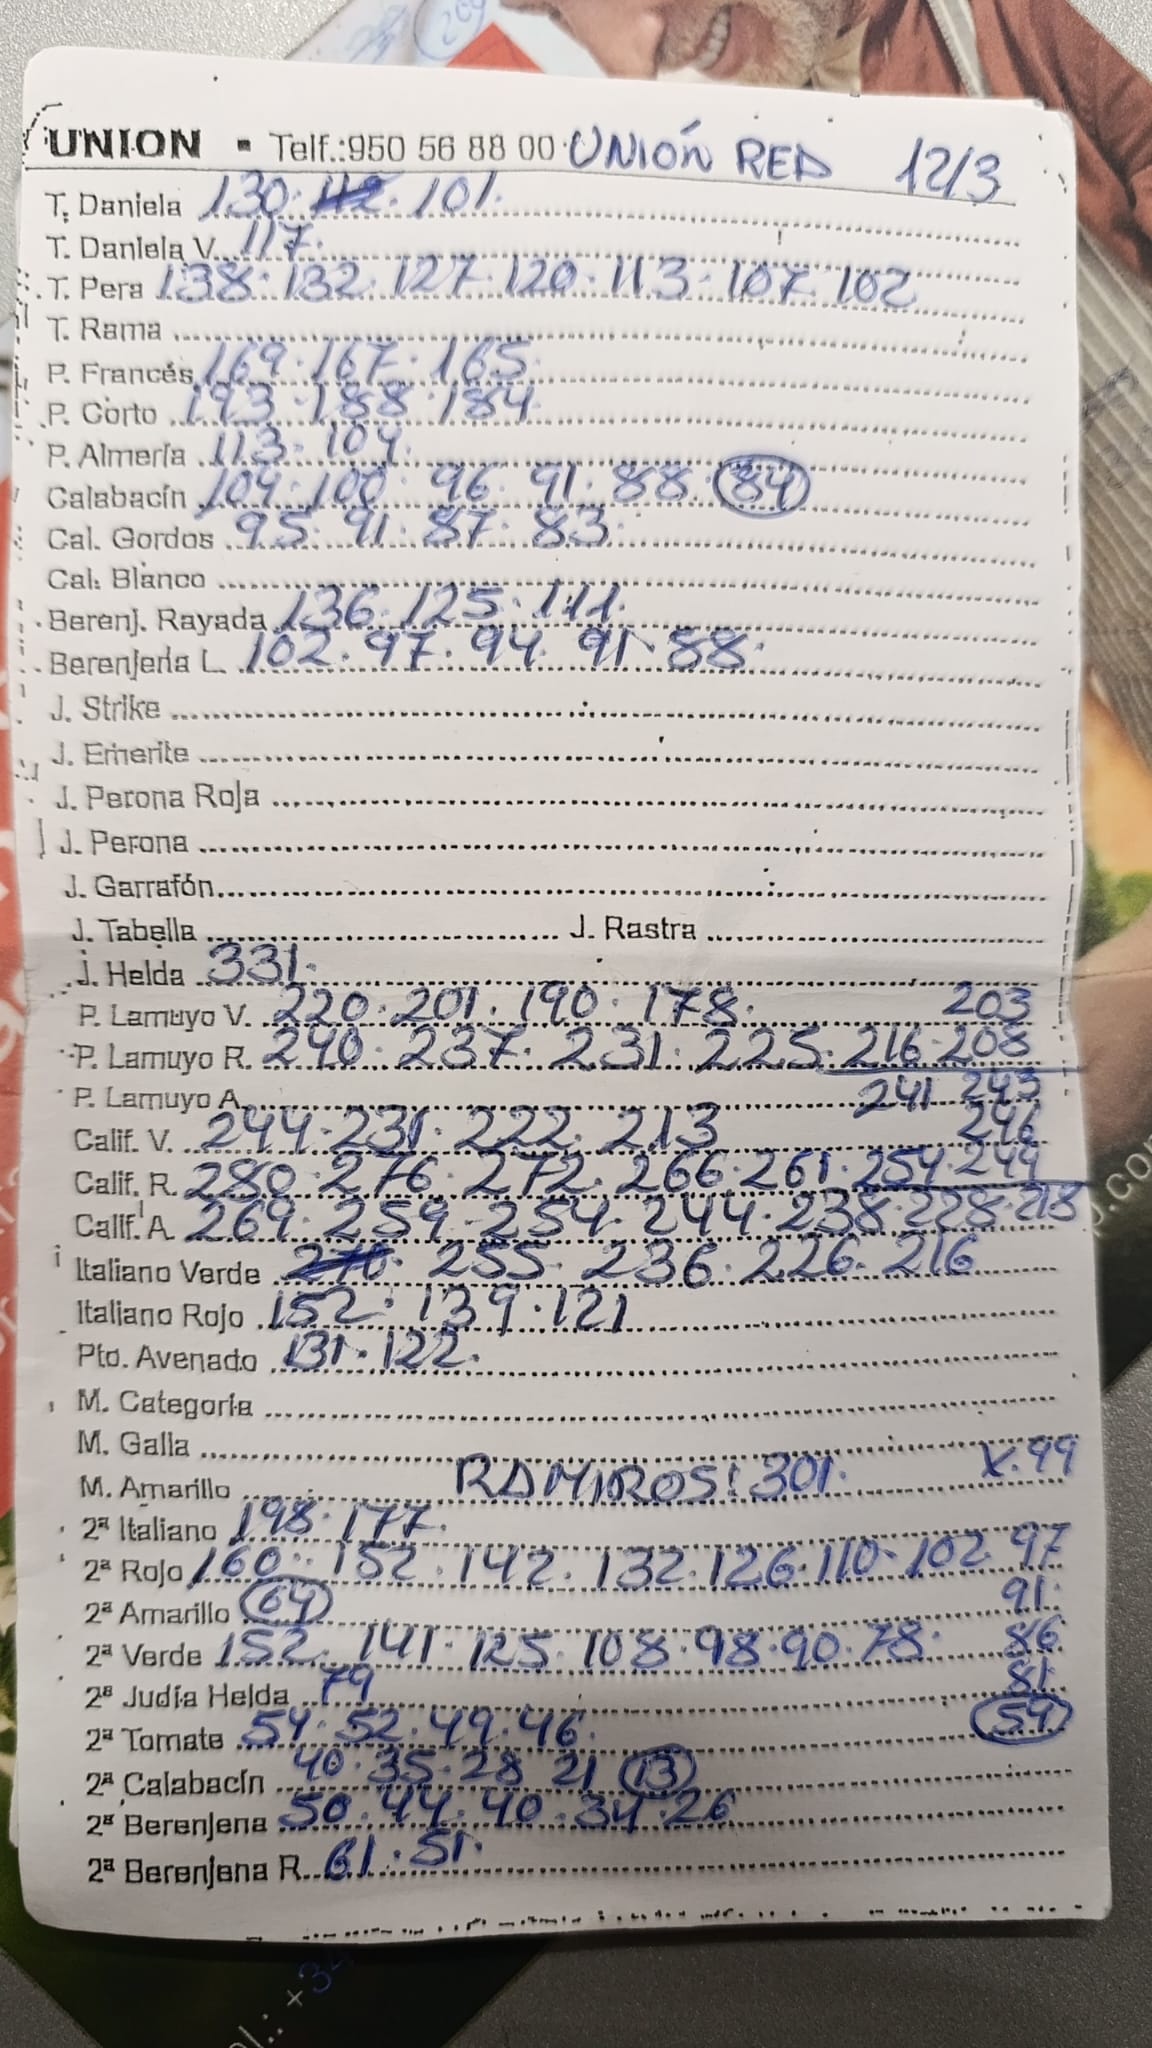 UNION - Telf.:950 56 88 00 UNIÓN RED 12/3
T. Daniela 130. 112. 101.
T. Daniela V. 117.
T. Pera 138. 132. 127. 120. 113. 107. 102
T. Rama
P. Francés 169. 167. 165.
P. Corto 193. 188. 184.
P. Almería 113. 104.
Calabacín 104. 100. 96. 91. 88. 84
Cal. Gordos 95. 91. 87. 83.
Cal. Blanco
Berenj. Rayada 136. 125. 111.
Berenjena L. 102. 97. 94. 91. 88.
J. Strike
J. Emerite
J. Perona Roja
J. Perona
J. Garrafón
J. Tabella J. Rastra
J. Helda 331.
P. Lamuyo V. 220. 201. 190. 178. 203
P. Lamuyo R. 240. 237. 231. 225. 216. 208
P. Lamuyo A. 241 243
Calif. V. 244. 231. 222. 213 246
Calif. R. 280. 276. 272. 266. 261. 254. 249
Calif. A. 269. 259. 254. 244. 238. 228. 218
Italiano Verde 270. 255. 236. 226. 216
Italiano Rojo 152. 139. 121
Pto. Avenado 131. 122.
M. Categoría
M. Galia
M. Amarillo RAMIROS: 301. X. 99
2ª Italiano 198. 177.
2ª Rojo 160. 152. 142. 132. 126. 110. 102. 97
2ª Amarillo 64 91.
2ª Verde 152. 141. 125. 108. 98. 90. 78. 86
2ª Judía Helda 79 81.
2ª Tomate 54. 52. 49. 46. 54
2ª Calabacín 40. 35. 28 21 13
2ª Berenjena 50. 44. 40. 34. 26
2ª Berenjena R. 61. 51.